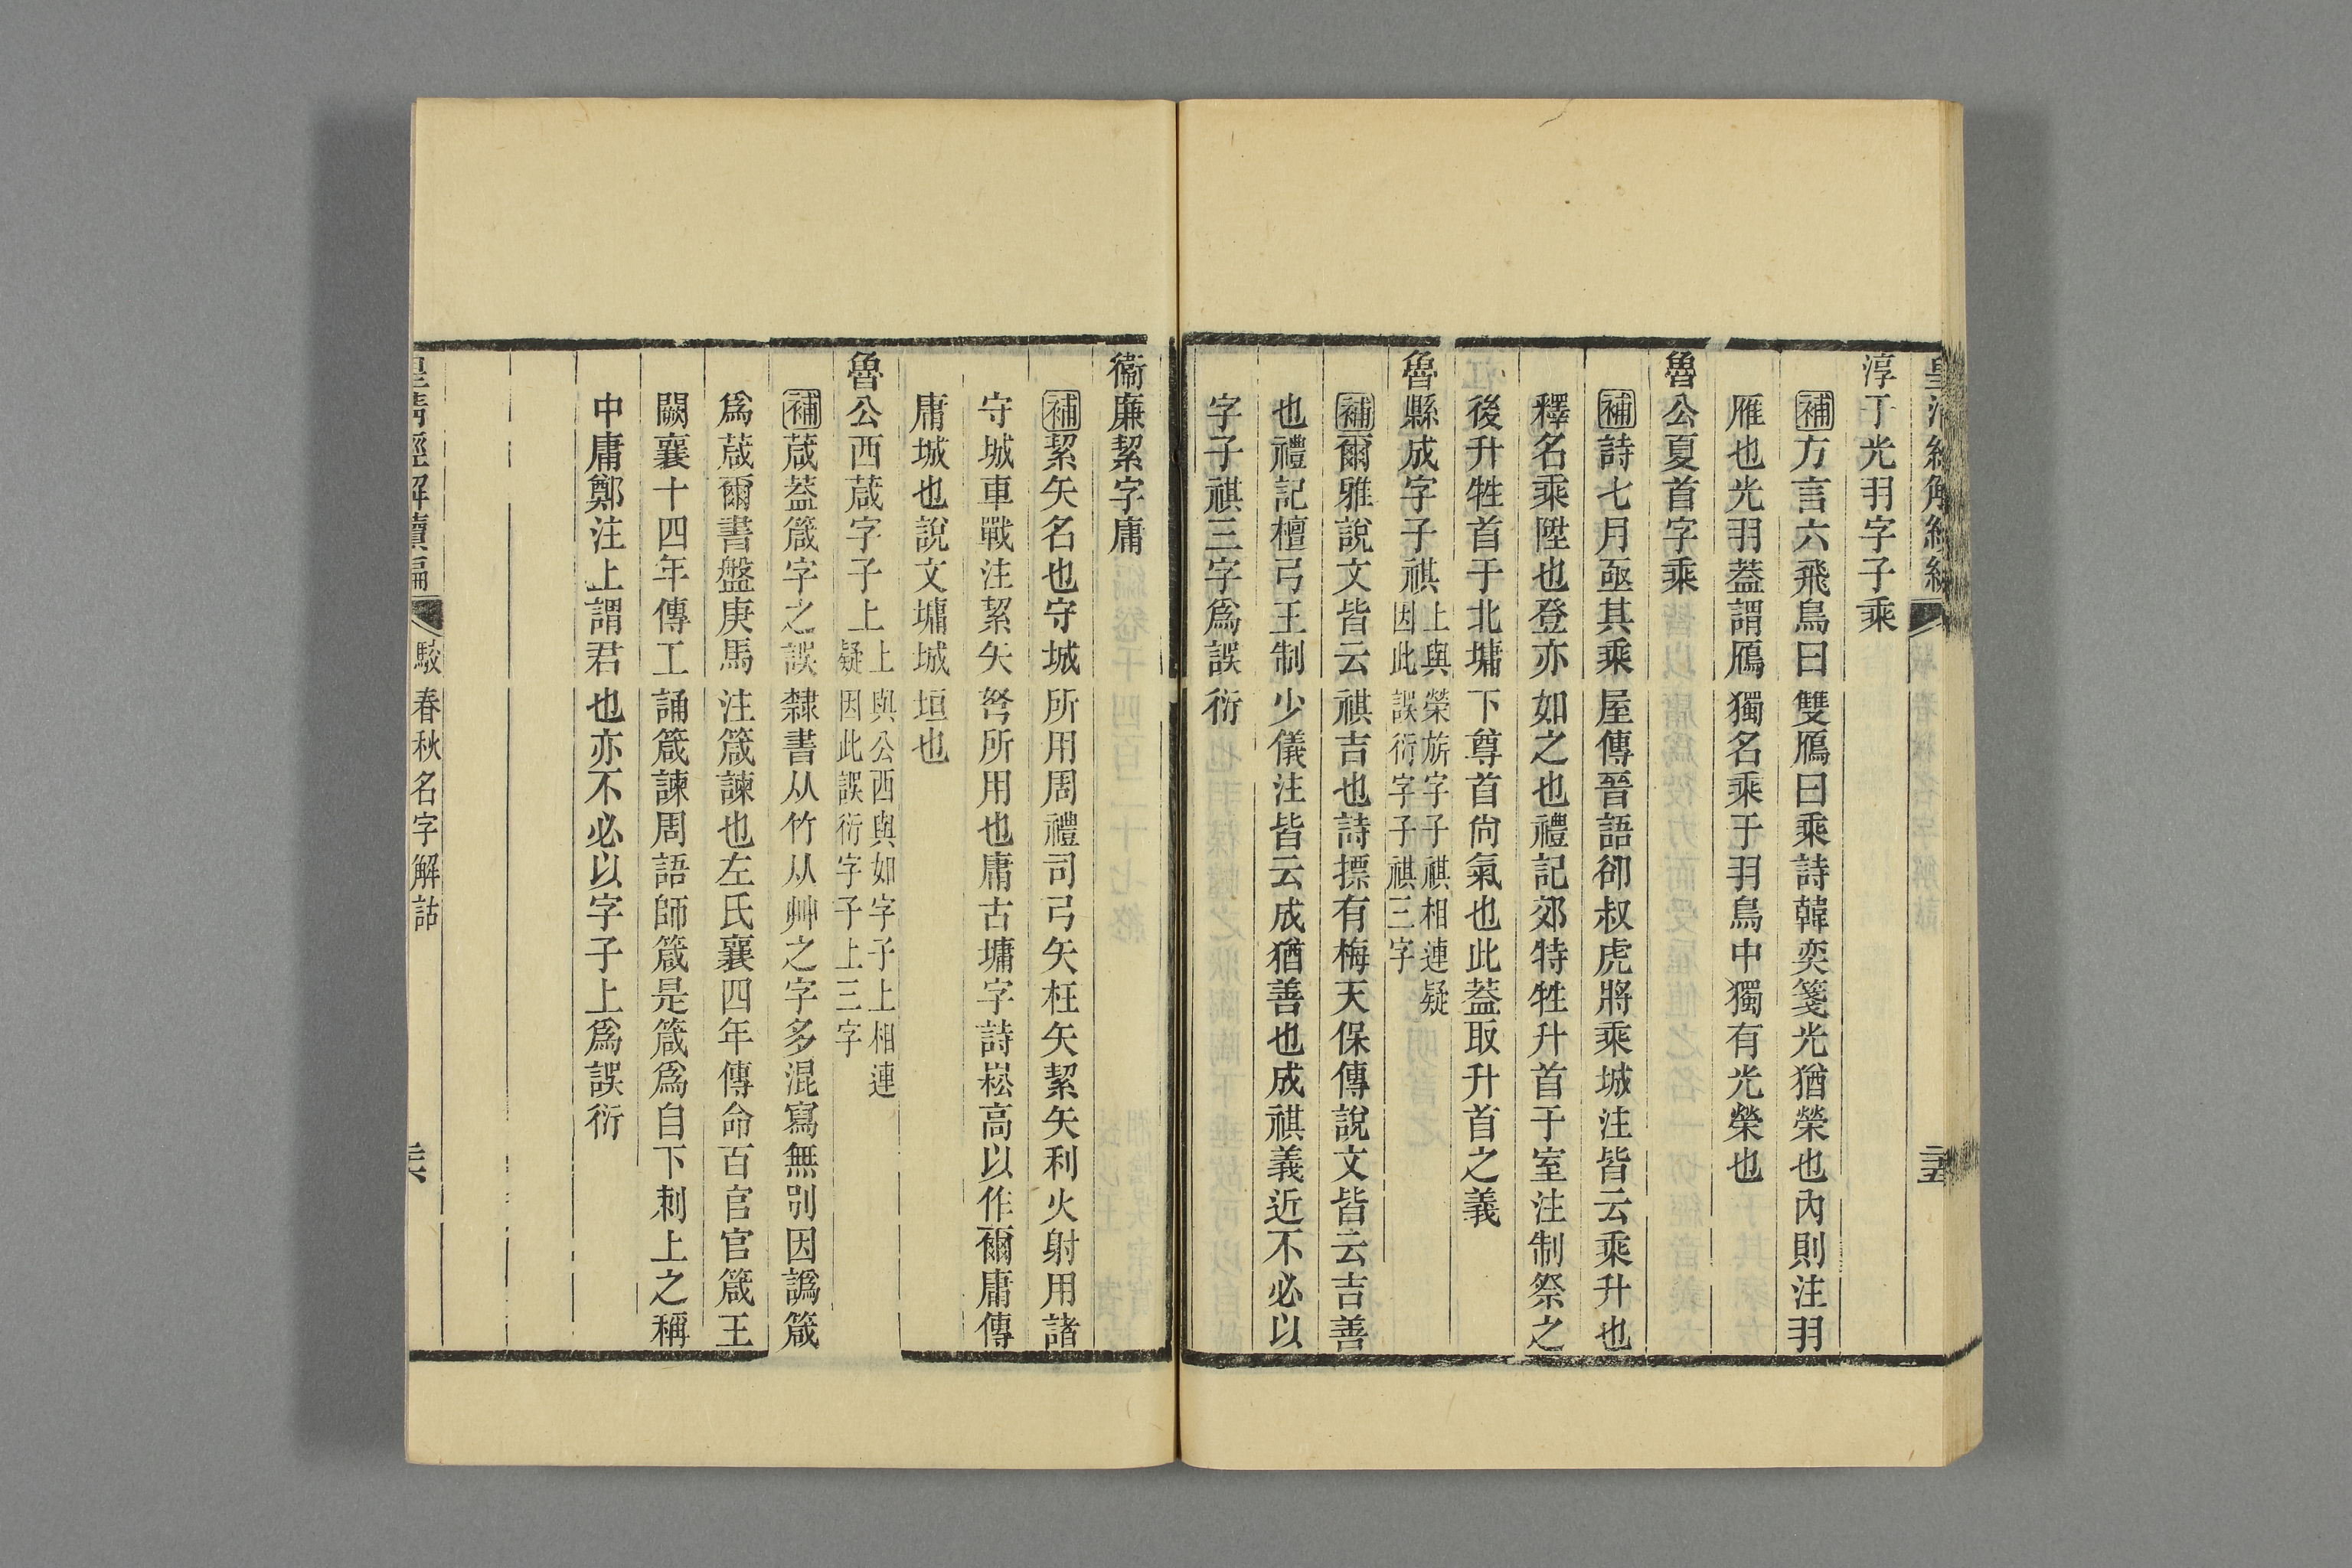 淳于光羽字子乘
補方言六飛鳥曰雙鴈曰乘詩韓奕箋光猶榮也內則注羽
雁也光羽葢謂鴈獨名乘于羽鳥中獨有光榮也
魯公夏首字乘
補詩七月亟其乘屋傳晉語郤叔虎將乘城注皆云乘升也
釋名乘陞也登亦如之也禮記郊特牲升首于室注制祭之
後升牲首于北墉下尊首尙氣也此葢取升首之義
魯縣成字子祺上與榮旂字子祺相連疑
因此誤衍字子祺三字
補爾雅說文皆云祺吉也詩摽有梅天保傳說文皆云吉善
也禮記檀弓王制少儀注皆云成猶善也成祺義近不必以
字子祺三字爲誤衍
衞廉絜字庸
補絜矢名也守城所用周禮司弓矢枉矢絜矢利火射用諸
守城車戰注絜矢弩所用也庸古墉字詩崧高以作爾庸傳
庸城也說文墉城垣也
魯公西葴字子上上與公西與如字子上相連
疑因此誤衍字子上三字
補葴葢箴字之誤隸書从竹从艸之字多混寫無別因譌箴
爲葴爾書盤庚馬注箴諫也左氏襄四年傳命百官官箴王
闕襄十四年傳工誦箴諫周語師箴是箴爲自下刺上之稱
中庸鄭注上謂君也亦不必以字子上爲誤衍
皇淸經解續編 駁春秋名字解詁